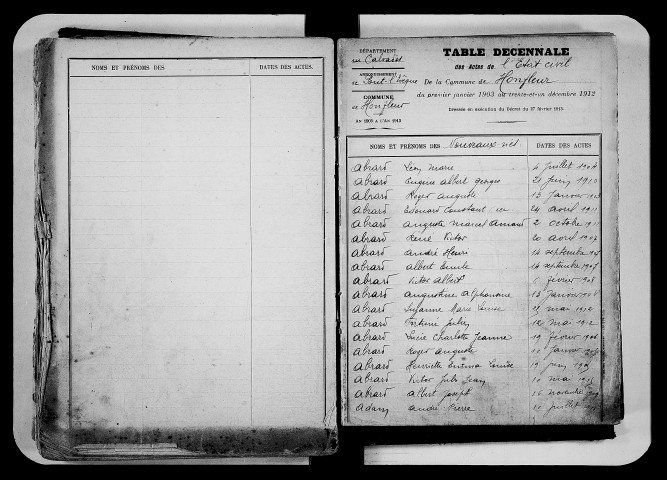 NOMS ET PRÉNOMS DES DATES DES ACTES
DÉPARTEMENT
du Calvados
ARRONDISSEMENT
de Pont-l'Evêque
COMMUNE
de Honfleur
AN 1903 A L'AN 1912
TABLE DÉCENNALE
des Actes de l'Etat civil
De la Commune de Honfleur
du premier janvier 1903 au trente-et-un décembre 1912
Dressée en exécution du Décret du
NOMS ET PRÉNOMS DES Nouveaux-nés DATES DES ACTES
Abrard Léon Marie 4 juillet 1904
Abrard Eugène Albert Georges 21 juin 1910
Abrard Roger Auguste 13 janvier
Abrard Edouard Constant 24 avril 1911
Abrard Auguste Marcel Armand 2 octobre
Abrard René Victor 20 avril
Abrard André Henri 14 septembre
Abrard Albert Emile 14 septembre 1907
Abrard Victor Albert février
Abrard Augustine Alphonsine 13 janvier
Abrard Suzanne Marie Louise mai 1912
Abrard Julien 12 mai 1912
Abrard Lucie Charlotte Jeanne 19 février
Abrard Roger Auguste janvier
Abrard Henriette Louise 19 juin
Abrard Victor Jules Jean 10 mai
Abrard Albert Joseph 16 novembre
Adam André Pierre juillet